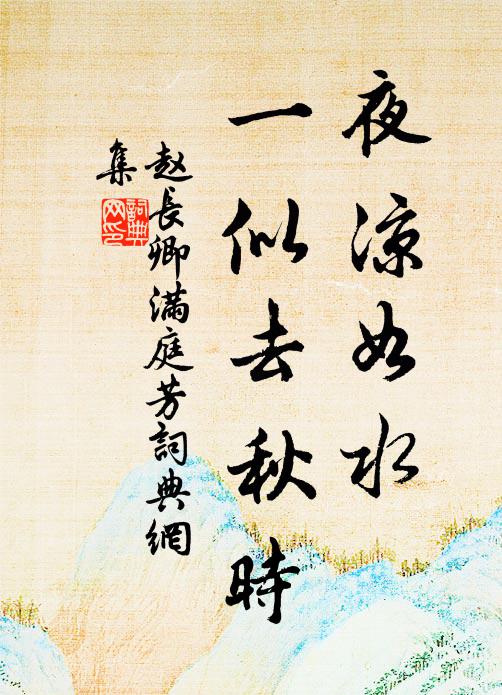 夜凉如水
一似去秋時
赵長卿满庭芳詞典網
集
詞典网印